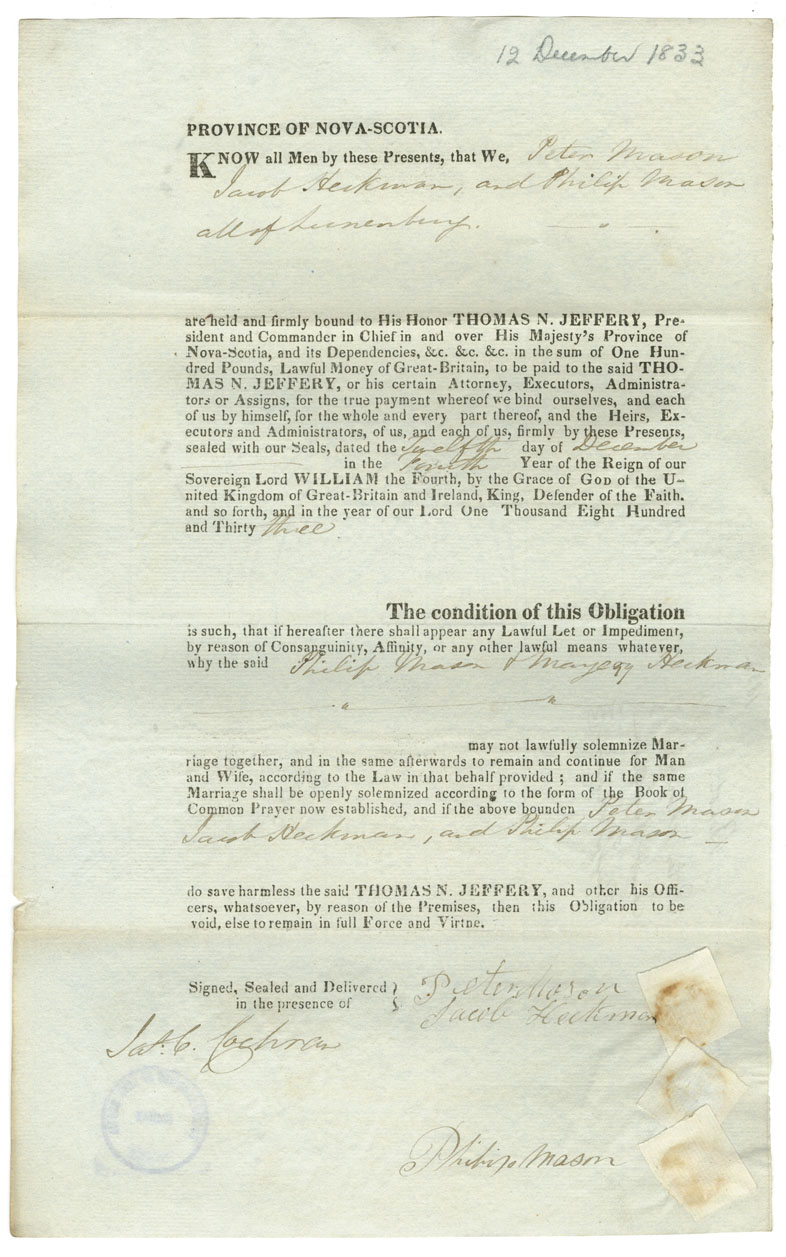 12 December 1833
PROVINCE OF NOVA-SCOTIA.
KNOW all Men by these Presents, that We, Peter Mason
Jacob Heckman, and Philip Mason
all of Lunenburg.
are held and firmly bound to His Honor THOMAS N. JEFFERY, Pre-
sident and Commander in Chief in and over His Majesty's Province of
Nova-Scotia, and its Dependencies, &c. &c. &c. in the sum of One Hun-
dred Pounds, Lawful Money of Great-Britain, to be paid to the said THO-
MAS N. JEFFERY, or his certain Attorney, Executors, Administra-
tors or Assigns, for the true payment whereof we bind ourselves, and each
of us by himself, for the whole and every part thereof, and the Heirs, Ex-
ecutors and Administrators, of us, and each of us, firmly by these Presents,
sealed with our Seals, dated the Twelfth day of December
in the Fourth Year of the Reign of our
Sovereign Lord WILLIAM the Fourth, by the Grace of GOD of the U-
nited Kingdom of Great-Britain and Ireland, King, Defender of the Faith.
and so forth, and in the year of our Lord One Thousand Eight Hundred
and Thirty three.
The condition of this Obligation
is such, that if hereafter there shall appear any Lawful Let or Impediment,
by reason of Consanguinity, Affinity, or any other lawful means whatever,
why the said Philip Mason & Heckman
may not lawfully solemnize Mar-
riage together, and in the same afterwards to remain and continue for Man
and Wife, according to the Law in that behalf provided ; and if the same
Marriage shall be openly solemnized according to the form of the Book of
Common Prayer now established, and if the above bounden Peter Mason
Jacob Heckman, and Philip Mason
do save harmless the said THOMAS N. JEFFERY, and other his Offi-
cers, whatsoever, by reason of the Premises, then this Obligation to be
void, else to remain in full Force and Virtne.
Signed, Sealed and Delivered
in the presence of
Pieter Mason
Jacob Heckman
Jas. C. Cochran
Philip Mason